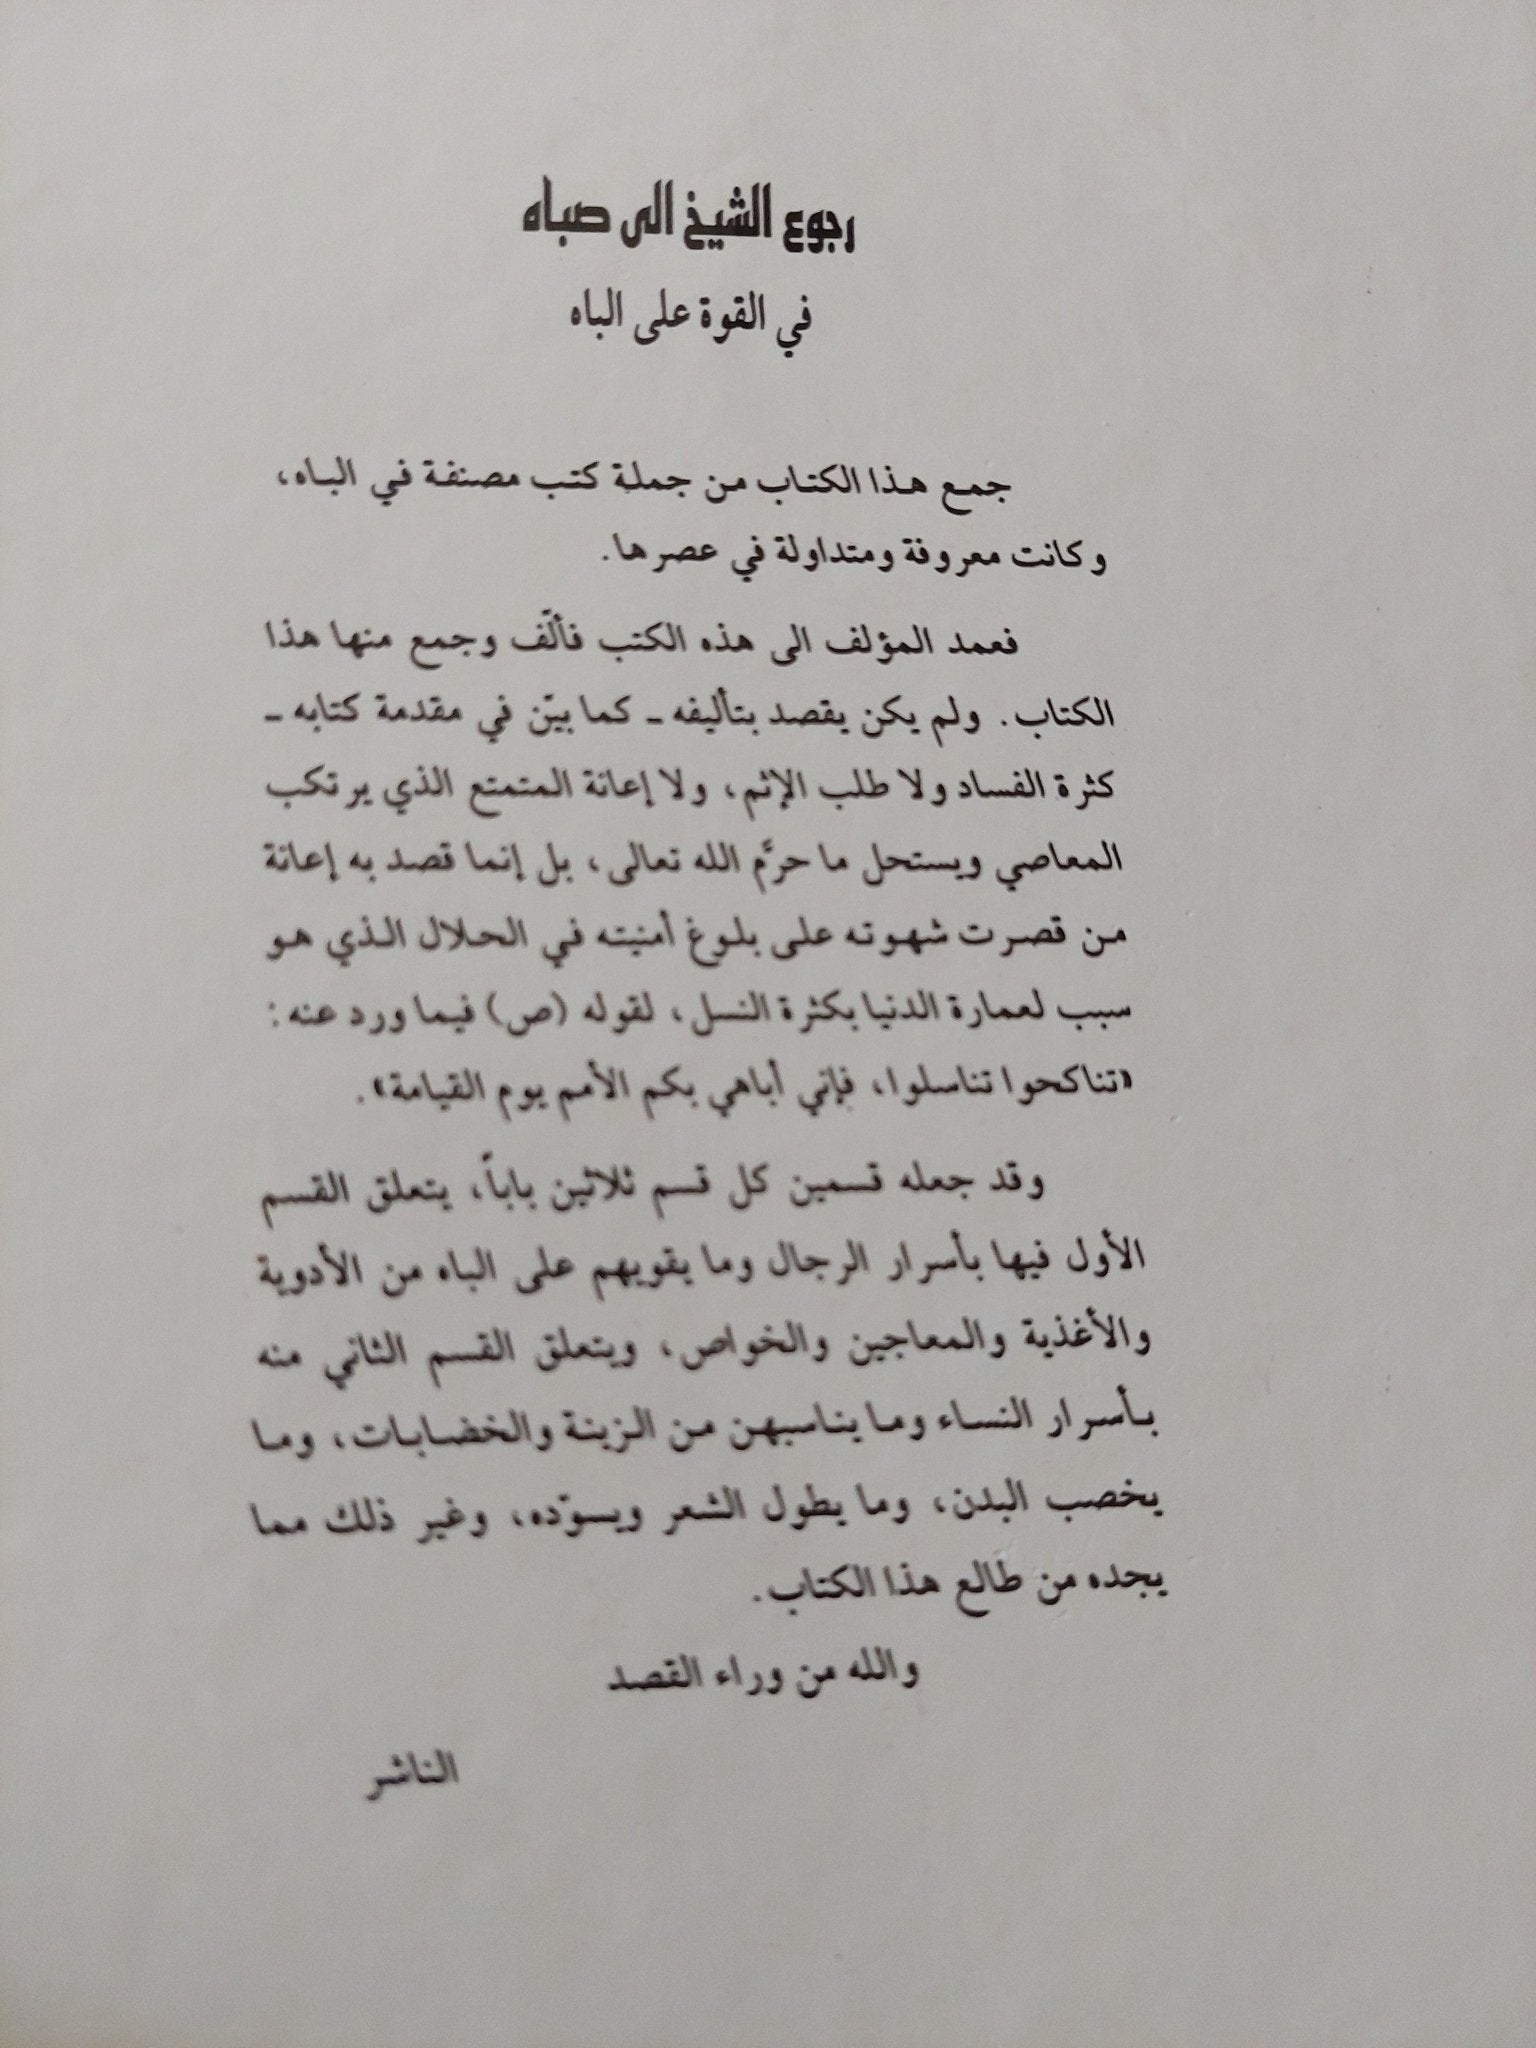 رجوع الشيخ الى صباه
في القوة على الباه
جمع هذا الكتاب من جملة كتب مصنفة في الباه،
وكانت معروفة ومتداولة في عصرها.
فعمد المؤلف الى هذه الكتب فألّف وجمع منها هذا
الكتاب. ولم يكن يقصد بتأليفه - كما بيّن في مقدمة كتابه -
كثرة الفساد ولا طلب الإثم، ولا إعانة المتمتع الذي يرتكب
المعاصي ويستحل ما حرَّم الله تعالى، بل إنما قصد به إعانة
من قصرت شهوته على بلوغ أمنيته في الحلال الذي هو
سبب لعمارة الدنيا بكثرة النسل، لقوله (ص) فيما ورد عنه:
«تناكحوا تناسلوا، فإني أباهي بكم الأمم يوم القيامة».
وقد جعله قسمين كل قسم ثلاثين باباً، يتعلق القسم
الأول فيها بأسرار الرجال وما يقويهم على الباه من الأدوية
والأغذية والمعاجين والخواص، ويتعلق القسم الثاني منه
بأسرار النساء وما يناسبهن من الزينة والخضابات، وما
يخصب البدن، وما يطول الشعر ويسوّده، وغير ذلك مما
يجده من طالع هذا الكتاب.
والله من وراء القصد
الناشر